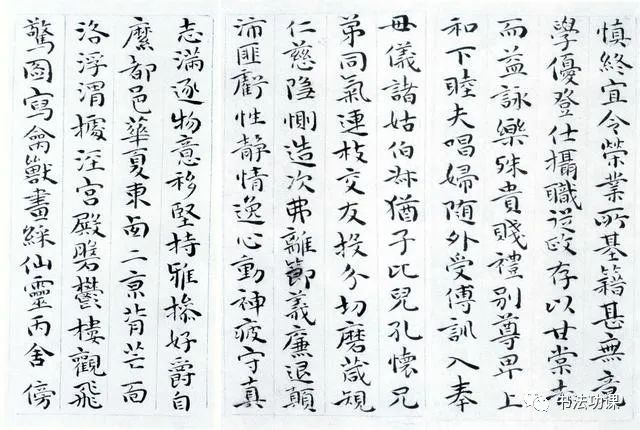 慎終宜令榮業所基籍甚無竟
學優登仕攝職從政存以甘棠去
而益詠樂殊貴賤禮別尊卑上
和下睦夫唱婦随外受傅訓入奉
母儀諸姑伯叔猶子比兒孔懷兄
弟同氣連枝交友投分切磨箴規
仁慈隐惻造次弗離節義廉退顛
沛匪虧性靜情逸心動神疲守真
志滿逐物意移堅持雅操好爵自
縻都邑華夏東西二京背芒面
洛浮渭據涇宮殿磐鬱樓觀飛
驚圖寫禽獸畫綵仙靈丙舍傍
书法功课